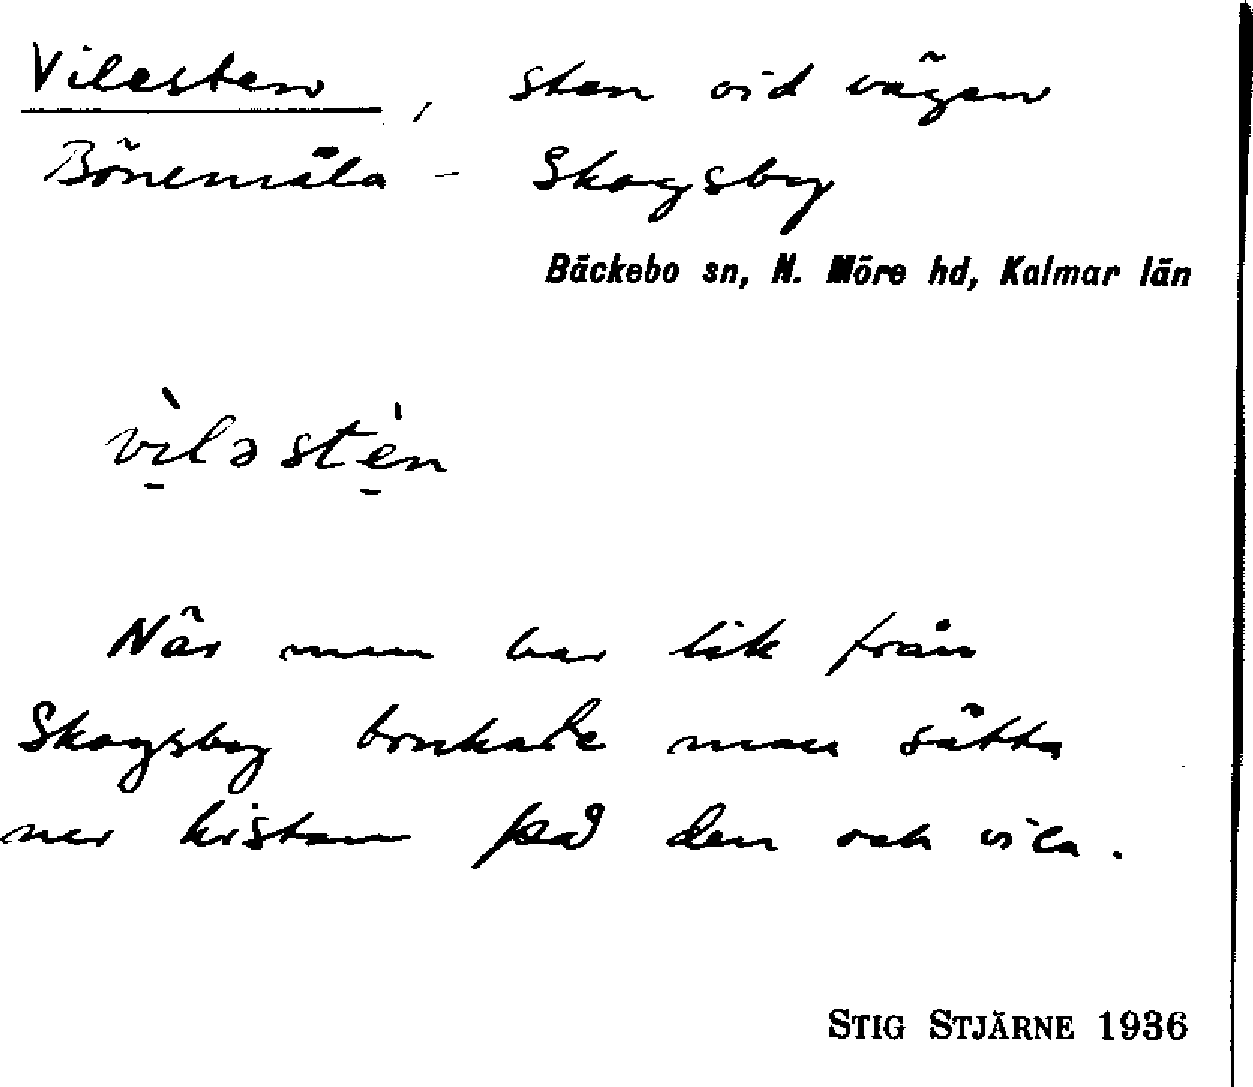 Vilesten, sten vid vägen
Bönemåla - Skogsby
Bäckebo sn, N. Möre hd, Kalmar län
vìləstén
När man bar lik från
Skogsby brukade man sätta
ner kistan på den och vila.
STIG STJÄRNE 1936